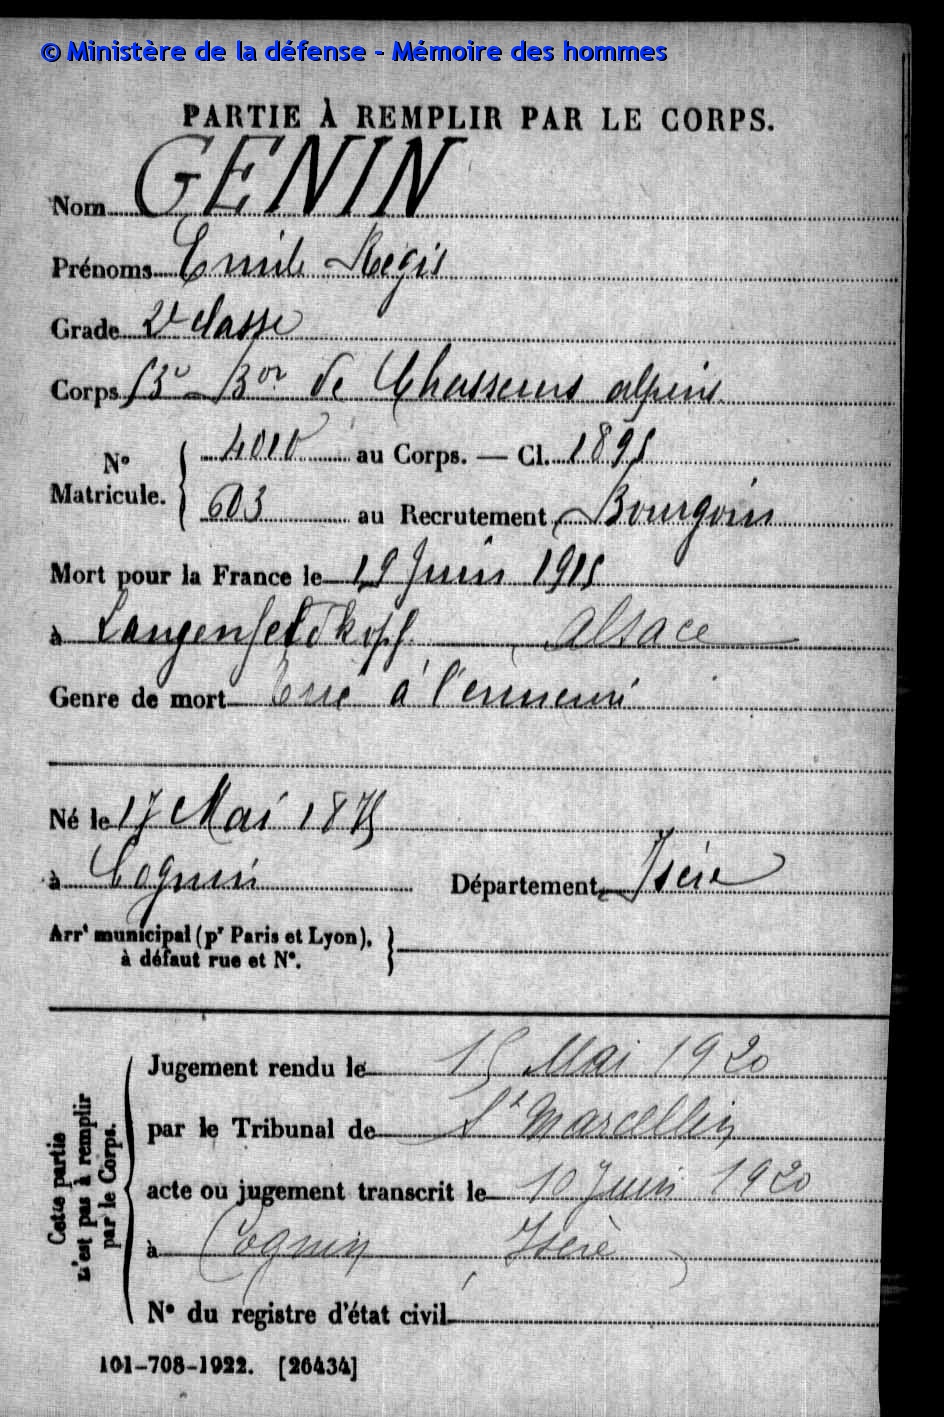 © Ministère de la défense - Mémoire des hommes
PARTIE À REMPLIR PAR LE CORPS.
Nom GENIN
Prénoms Emile Régis
Grade 2e classe
Corps 13e Bon de Chasseurs alpins
N° Matricule. 4010 au Corps. — Cl. 1895
603 au Recrutement Bourgoin
Mort pour la France le 19 Juin 1915
à Langenfeldkopf Alsace
Genre de mort Tué à l'ennemi
Né le 17 Mai 1875
à Cognin Département Isère
Arrt municipal (pr Paris et Lyon),
à défaut rue et N°.
Cette partie
n'est pas à remplir
par le Corps.
Jugement rendu le 15 Mai 1920
par le Tribunal de St Marcellin
acte ou jugement transcrit le 10 Juin 1920
à Cognin Isère
N° du registre d'état civil
101-708-1922. [26434]